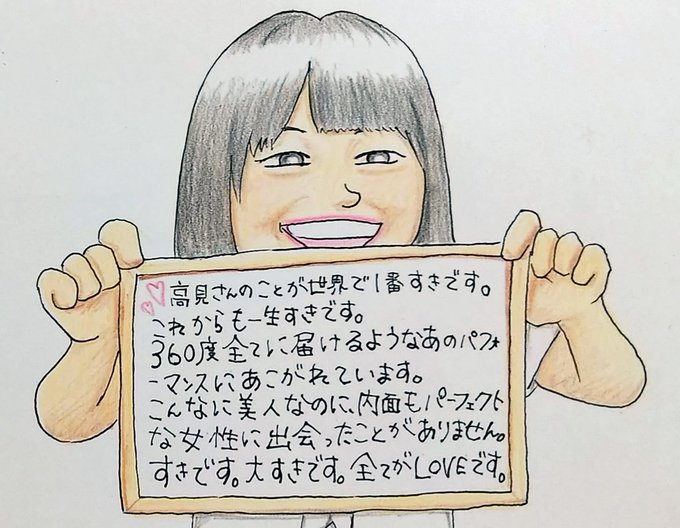 高見さんのことが世界で1番すきです。
これからも一生すきです。
360度全てに届けるようなあのパフォ
ーマンスにあこがれています。
こんなに美人なのに、内面もパーフェクト
な女性に出会ったことがありません。
すきです。大すきです。全てがLOVEです。